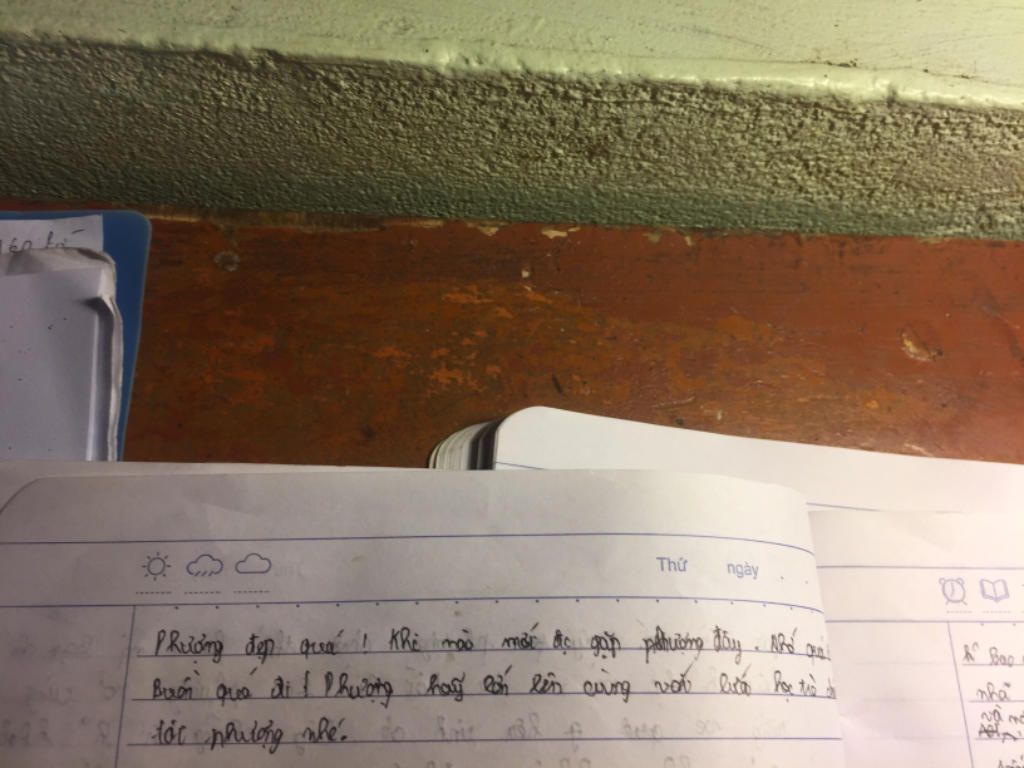 160
Thứ ngày
Phượng đẹp quá ! Khi nào mới đc gặp phượng đây . Nhớ quá
Buồn quá đi ! Phượng hãy lớn lên cùng với lứa học trò
tóc phượng nhé.
nhã
và